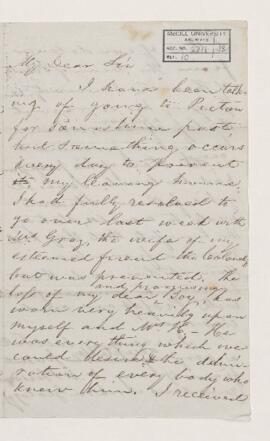 McGILL UNIVERSITY
ARCHIVES
ACC. NO.
REF. 10
My Dear Sir
I have been talk-
ing of going to Pictou
for some time past,
but something occurs
every day to prevent
my leaving home.
I had fully resolved to
go over last week with
Mrs Gray, the wife of my
esteemed friend the Colonel,
but was prevented. The
loss of my dear and promising Boy, has
worn very heavily upon
myself and Mrs H. - He
was everything which we
could desire & the admi-
ration of every body who
knew him. I received